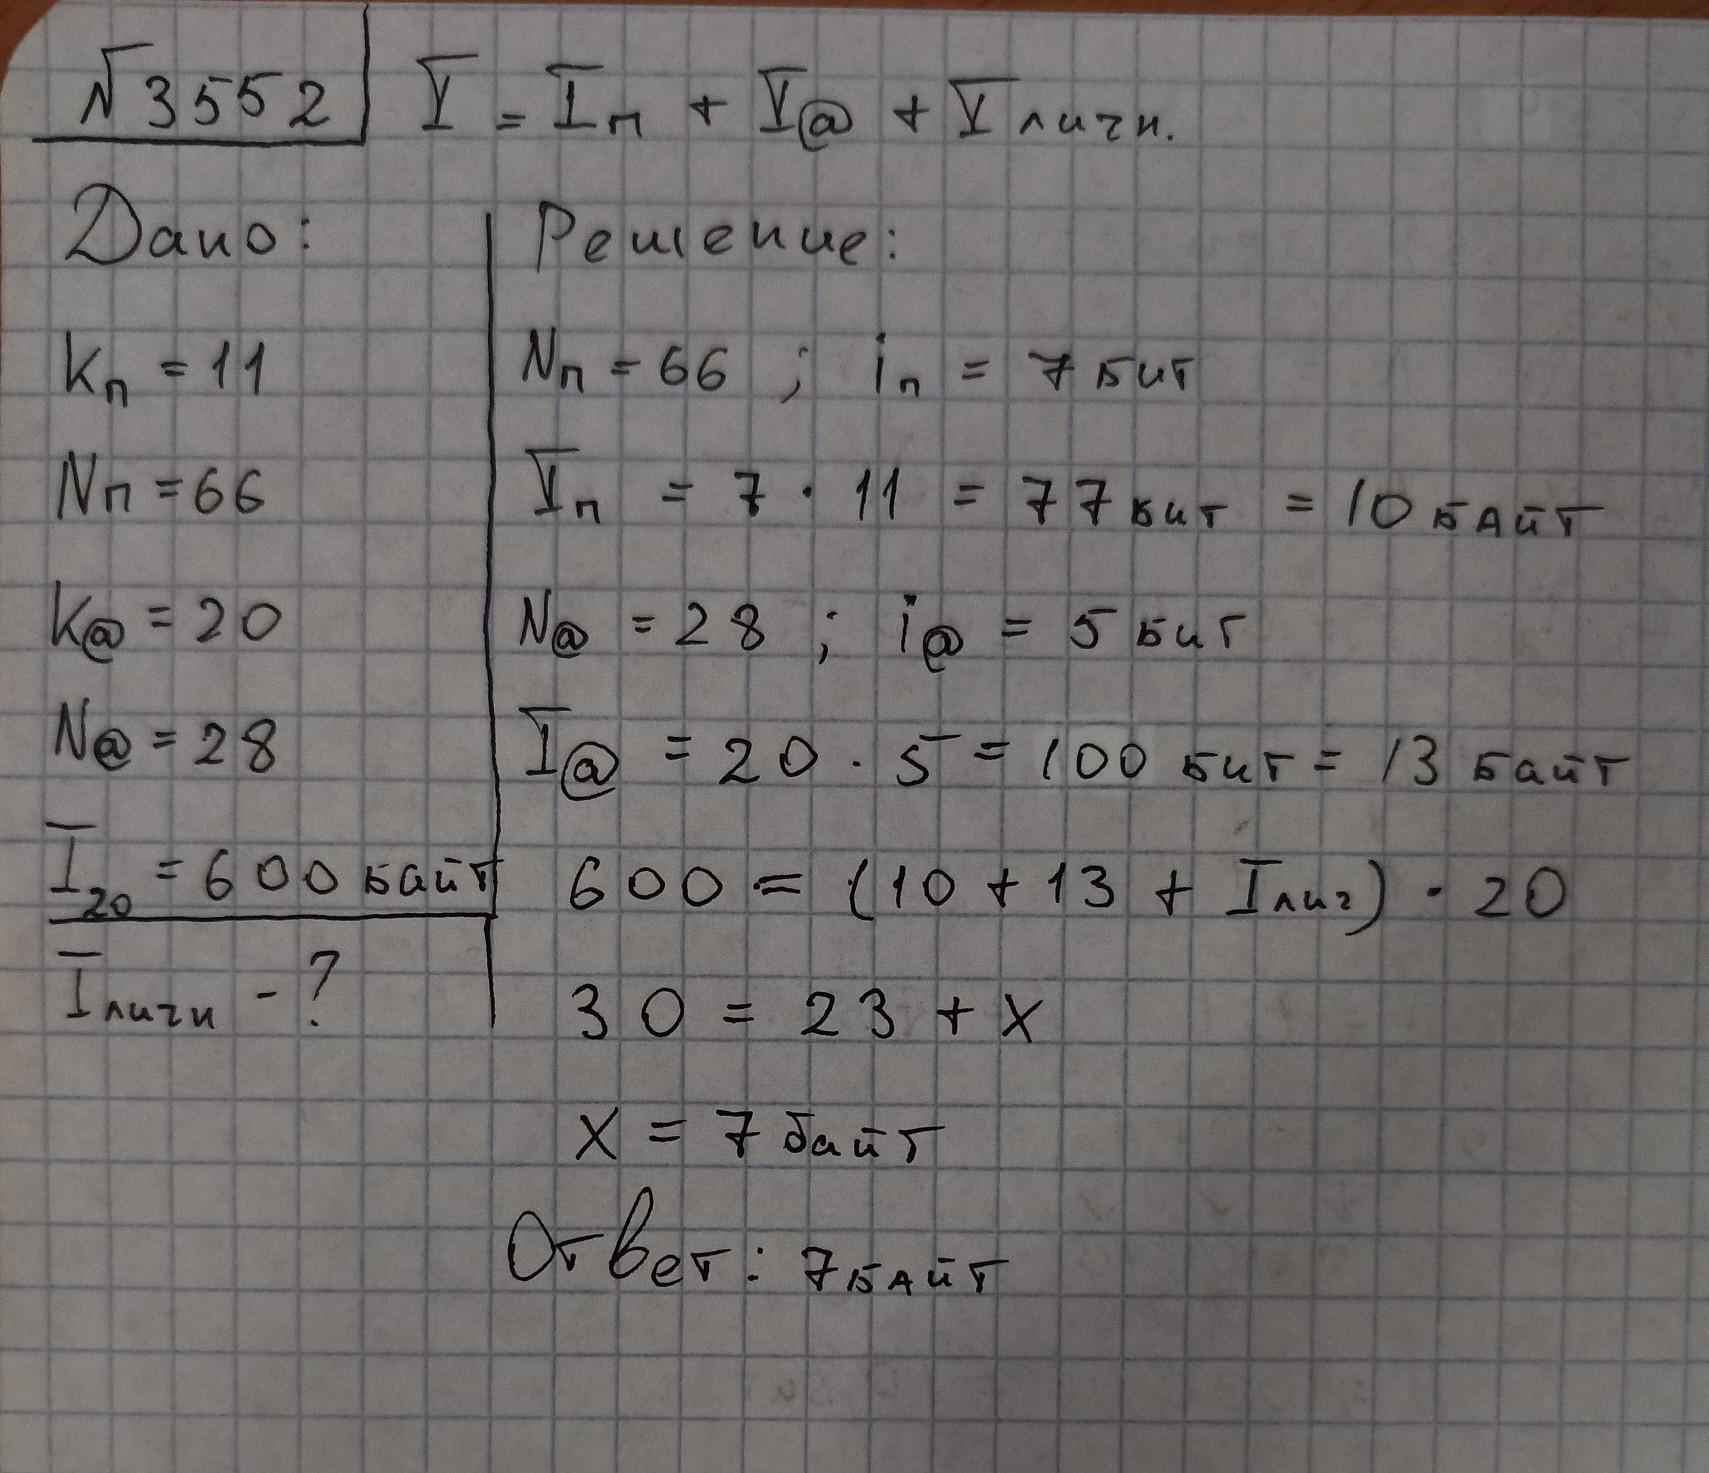 №3552
I = Iп + I@ + Iличн.
Дано:
Kп = 11
Nп = 66
K@ = 20
N@ = 28
I20 = 600 байт
Iличн - ?
Решение:
Nп = 66 ; iп = 7 бит
Iп = 7 · 11 = 77 бит = 10 байт
N@ = 28 ; i@ = 5 бит
I@ = 20 · 5 = 100 бит = 13 байт
600 = (10 + 13 + Iлич) · 20
30 = 23 + x
x = 7 байт
Ответ: 7 байт